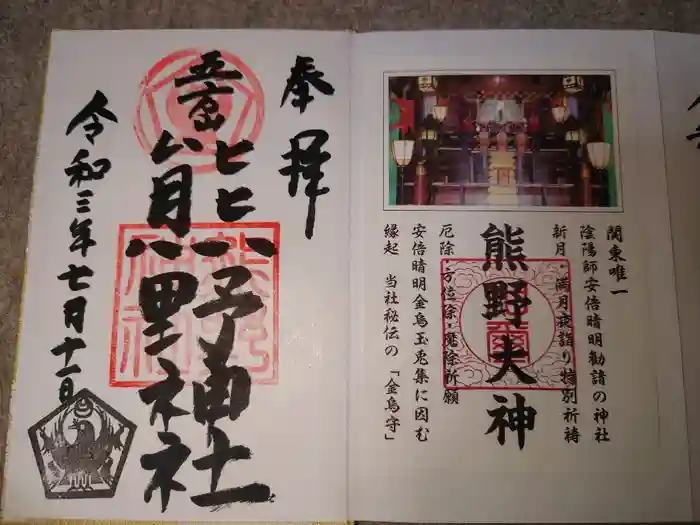 奉拝
五方山
熊野神社
令和三年七月十一日
熊野神社
関東唯一
陰陽師安倍晴明勧請の神社
新月・満月夜詣り特別祈祷
熊野大神
厄除・方位除・魔除祈願
安倍晴明金烏玉兎集に因む
縁起 当社秘伝の「金烏守」